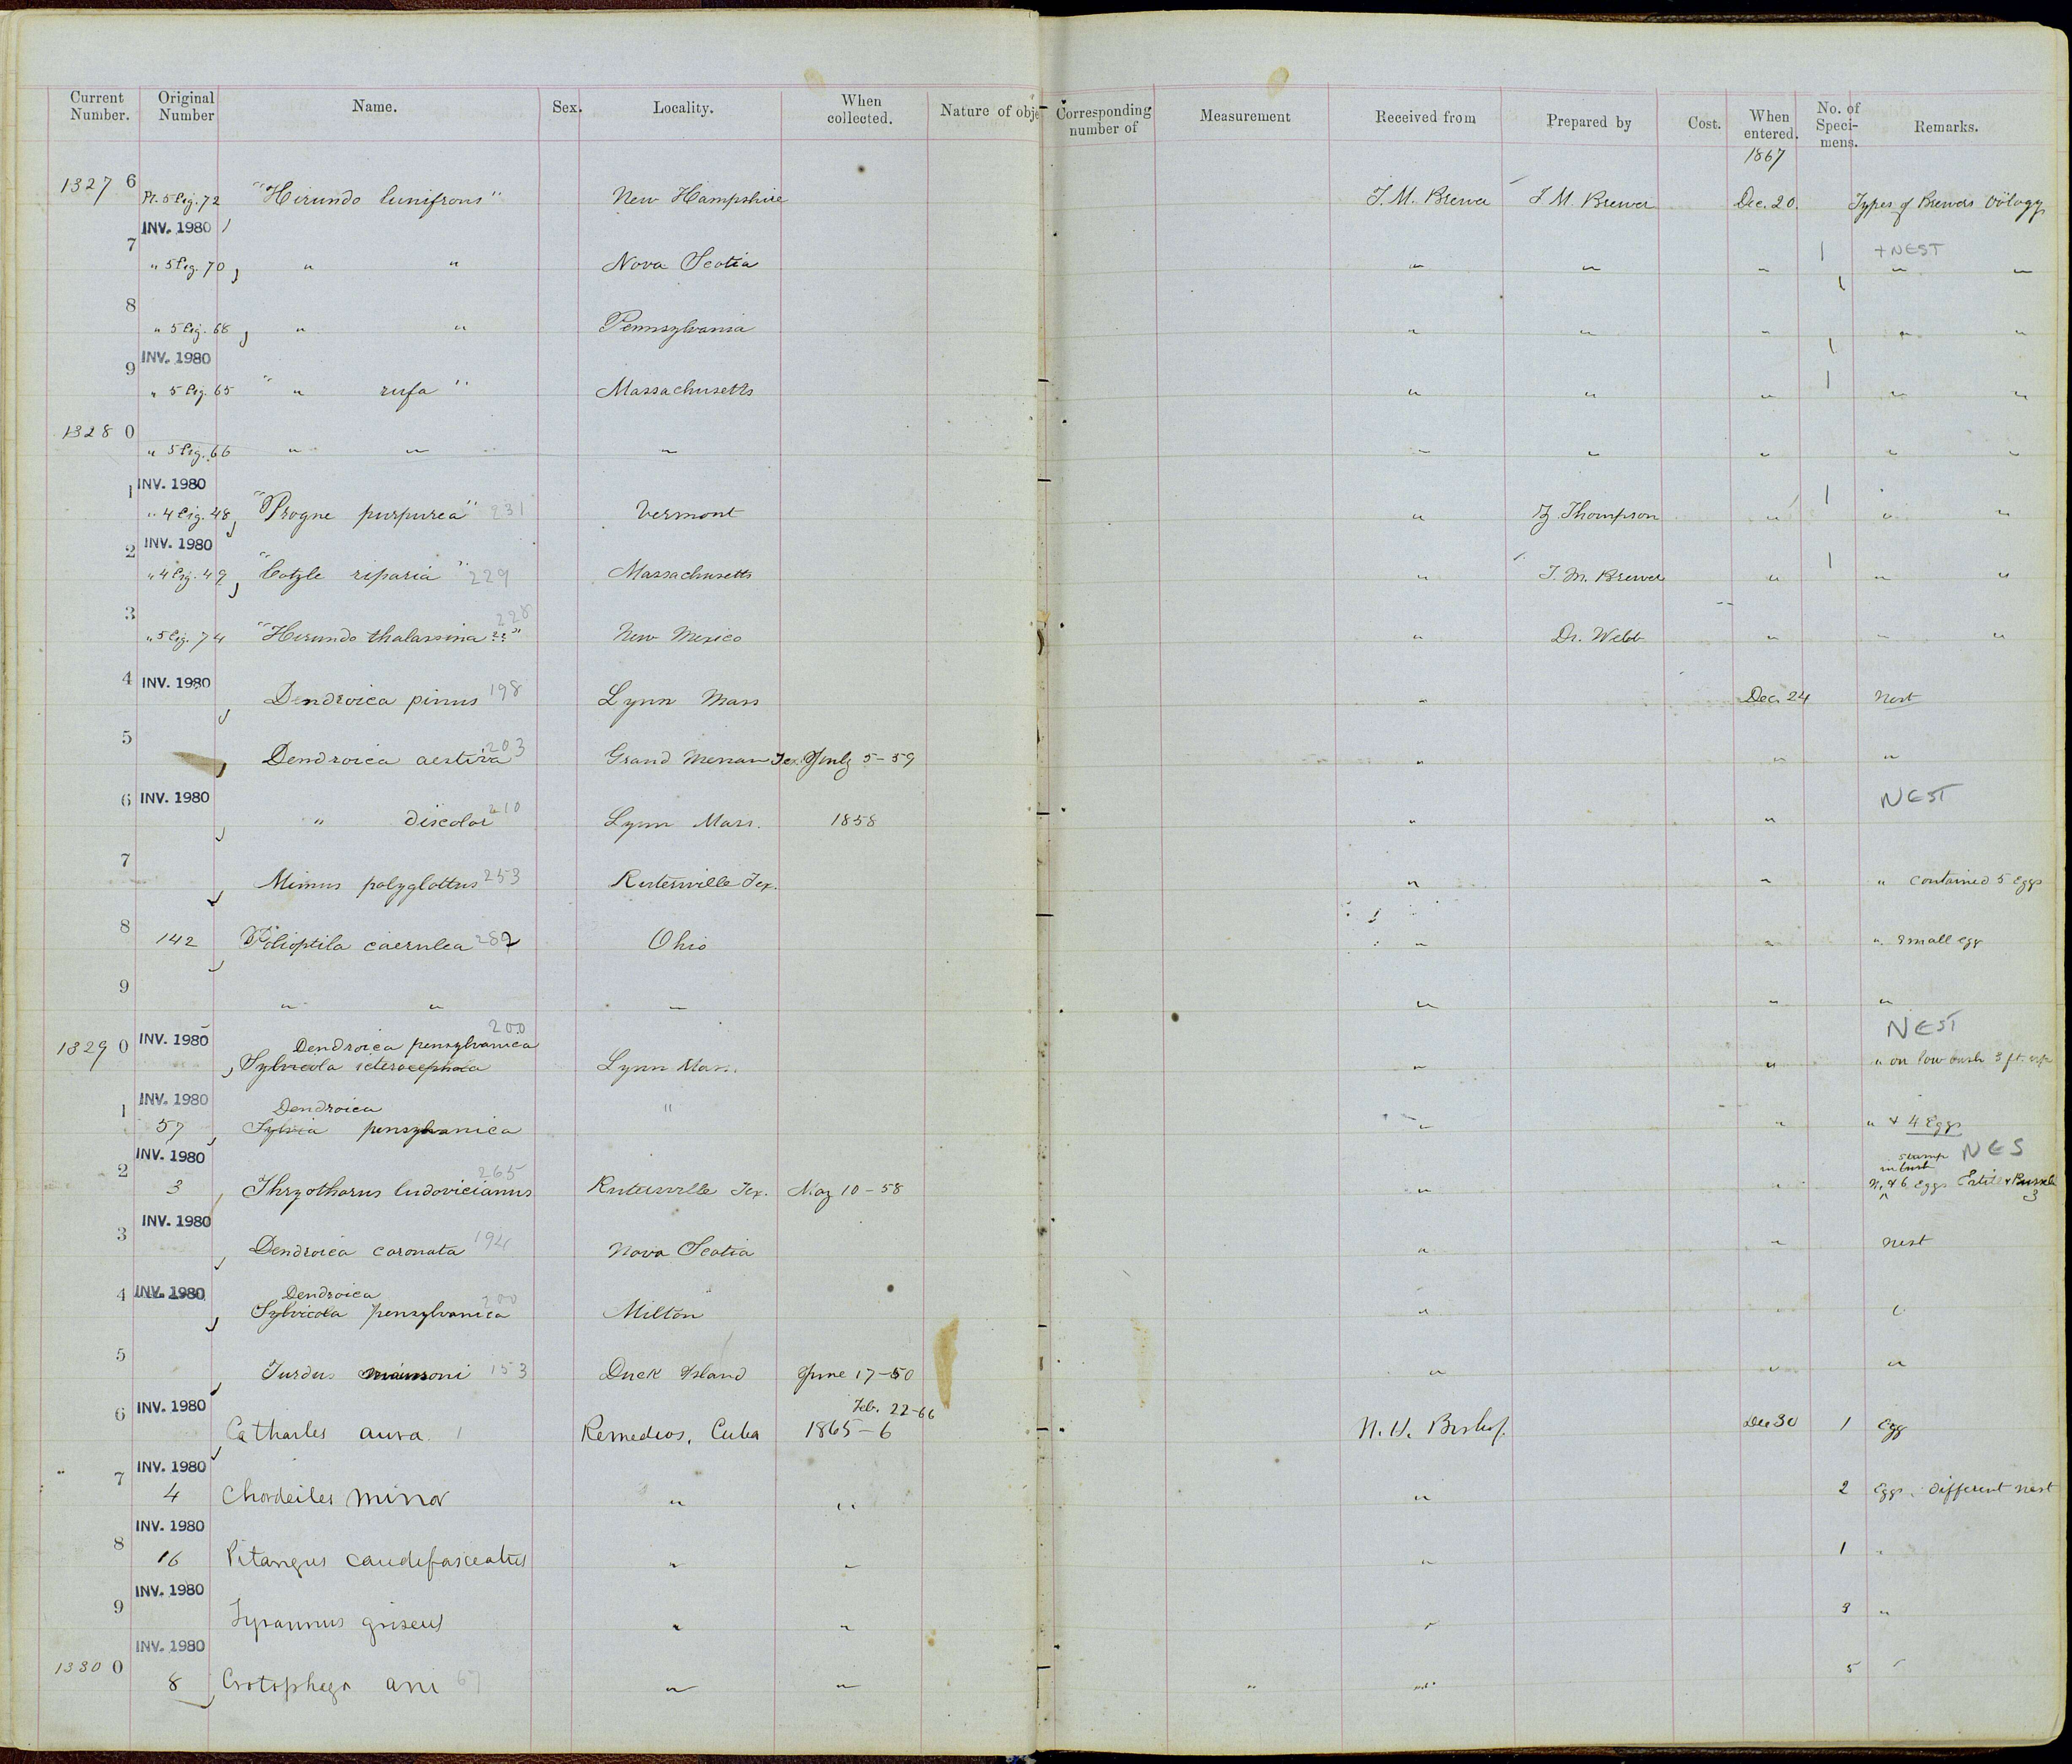 Current Number. Original Number Name. Sex. Locality. When collected. Nature of obje Corresponding number of Measurement Received from Prepared by Cost. When entered. No. of Specimens. Remarks.
1867
1327 6 Pl. 5 fig. 72 "Hirundo lunifrons" New Hampshire T. M. Brewer T. M. Brewer Dec. 20. Types of Brewers Oölogy
INV. 1980
7 " 5 fig. 70 " " Nova Scotia " " " 1 + NEST " "
8 " 5 fig. 68 " " Pennsylvania " " " 1 " "
INV. 1980
9 " 5 fig. 65 " " rufa " Massachusetts " " " 1 " "
1328 0 " 5 fig. 66 " " " " " " " "
INV. 1980
1 " 4 fig. 48 "Progne purpurea" 231 Vermont " Z Thompson " 1 " "
INV. 1980
2 " 4 fig. 49 "Cotyle riparia" 229 Massachusetts " T. M. Brewer " 1 " "
3 " 5 fig. 74 "Hirundo thalassina ??" 228 New Mexico " Dr. Webb " " "
4 INV. 1980 Dendroica pinus 198 Lynn Mass " Dec. 24 Nest
5 Dendroica aestiva 203 Grand Menan Tex. July 5-59 " " "
6 INV. 1980 " discolor 210 Lynn Mass. 1858 " " NEST
7 Mimus polyglottus 253 Rutersville Tex. " " " contained 5 eggs
8 142 Polioptila caerulea 282 Ohio " " " small egg
9 " " " " " "
1329 0 INV. 1980 Dendroica pensylvanica 200 NEST
Sylvicola icterocephala Lynn Mass. " " " on low bush 3 ft. up
1 INV. 1980 Dendroica
57 Sylvia pensylvanica " " " " + 4 Eggs
INV. 1980
2 3 Thryothorus ludovicianus 265 Rutersville Tex. May 10-58 " " N. + 6 eggs in bush
INV. 1980
3 Dendroica coronata 194 Nova Scotia " " Nest
4 INV. 1980 Dendroica
Sylvicola pensylvanica 200 Milton " " "
5 Turdus 153 Duck Island June 17-50 " " "
6 INV. 1980 Feb. 22-66
Cathartes aura. 1 Remedios, Cuba 1865-6 N. H. Bishop. Dec 30 1 Egg
INV. 1980
" 7 4 Chordeiles minor " " " 2 Eggs. different nest
INV. 1980
8 16 Pitangus caudifasciatus " " " 1 "
INV. 1980
9 Tyrannus griseus " " " 3 "
INV. 1980
1330 0 8 Crotophaga ani 67 " " " " 5 "